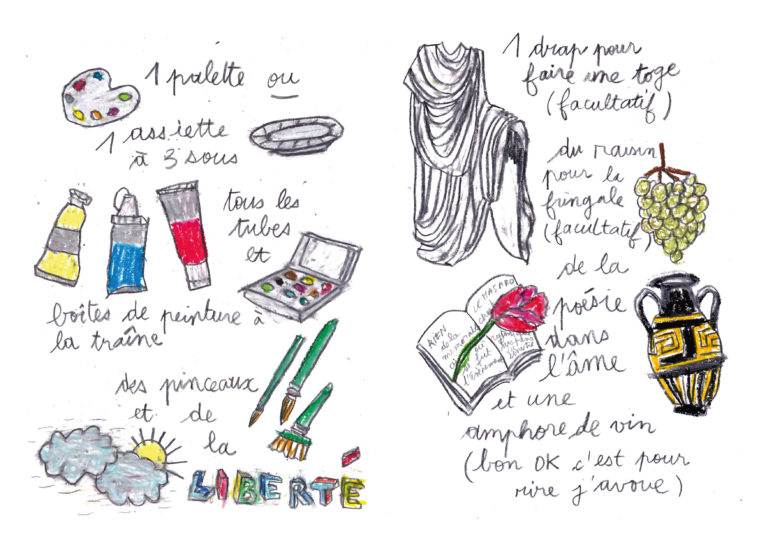 1 palette ou
1 assiette
à 3 sous
tous les
tubes
et
boîtes de peinture à
la traîne
des pinceaux
et de
la
LIBERTÉ
1 drap pour
faire une toge
(facultatif)
du raisin
pour la
fringale
(facultatif)
de la
poésie
dans
l'âme
RIEN
de la
LE HASARD
et une
amphore de vin
(bon OK c'est pour
rire j'avoue)